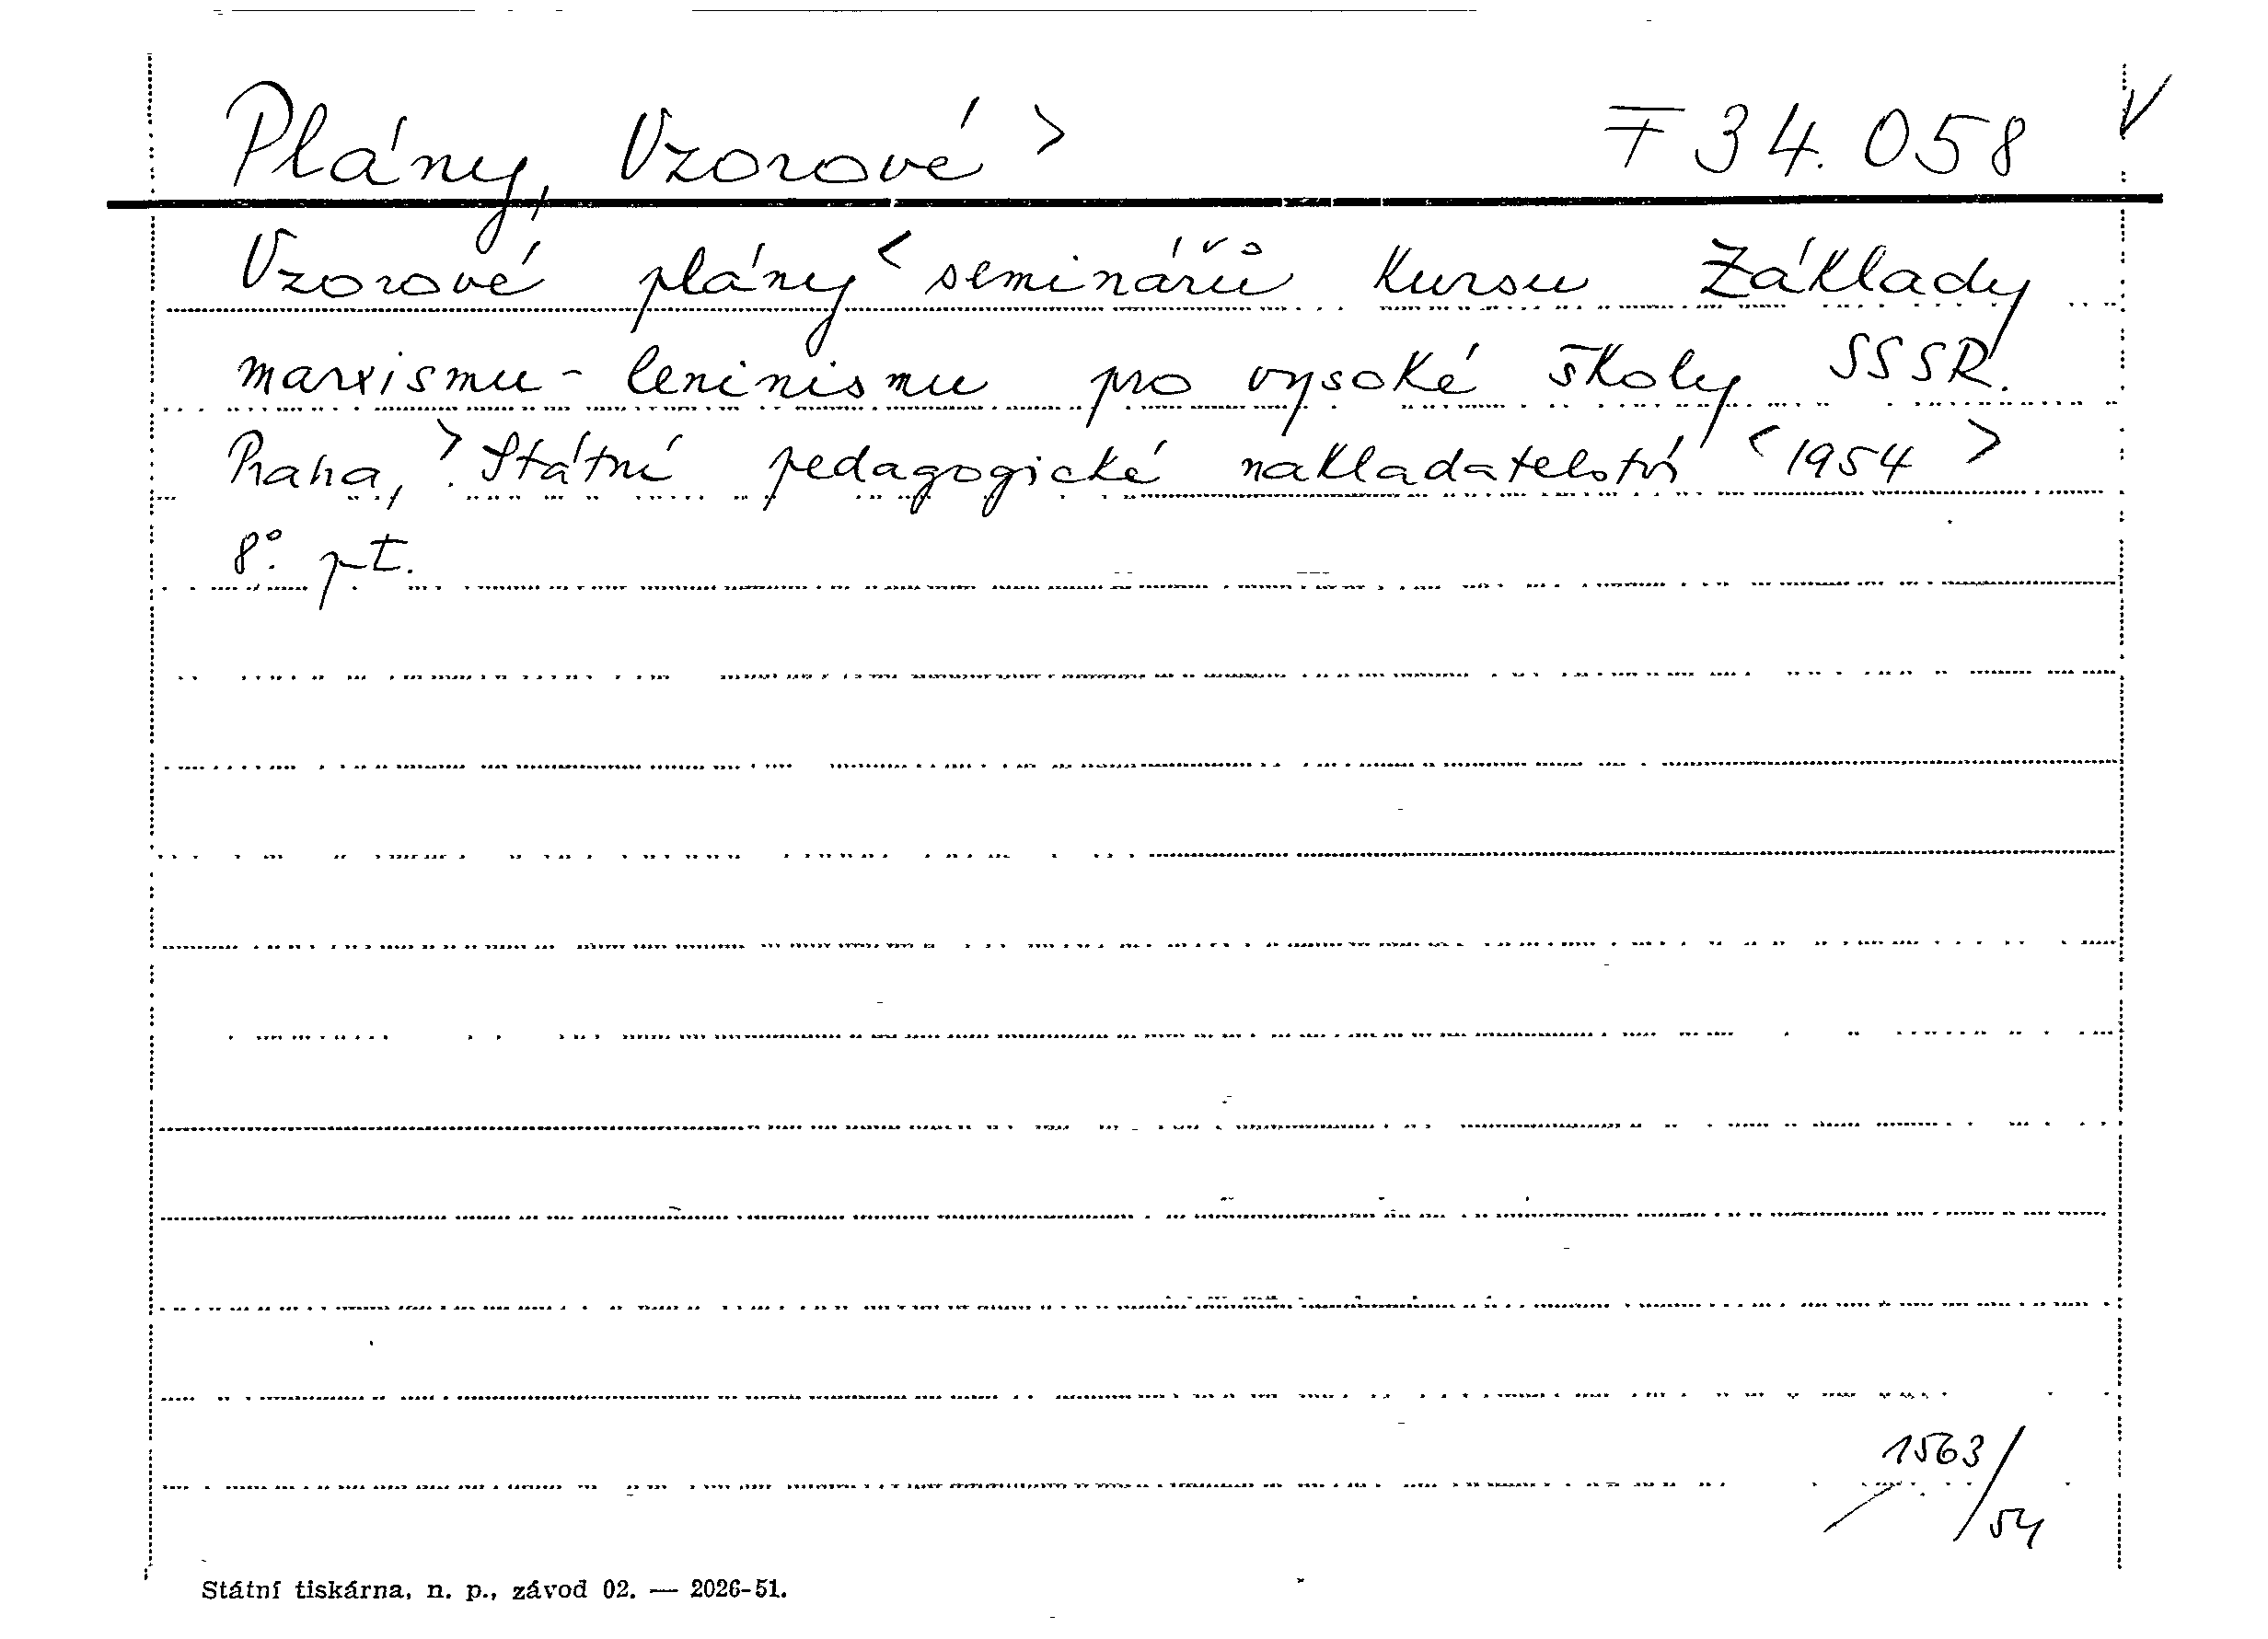 Plány, Vzorové > F 34.058 V
Vzorové plány < seminářů kursu Základy
marxismu - leninismu pro vysoké školy SSSR.
Praha, > Státní pedagogické nakladatelství < 1954 >
8°. pt.
1563/
54
Státní tiskárna, n. p., závod 02. — 2026-51.